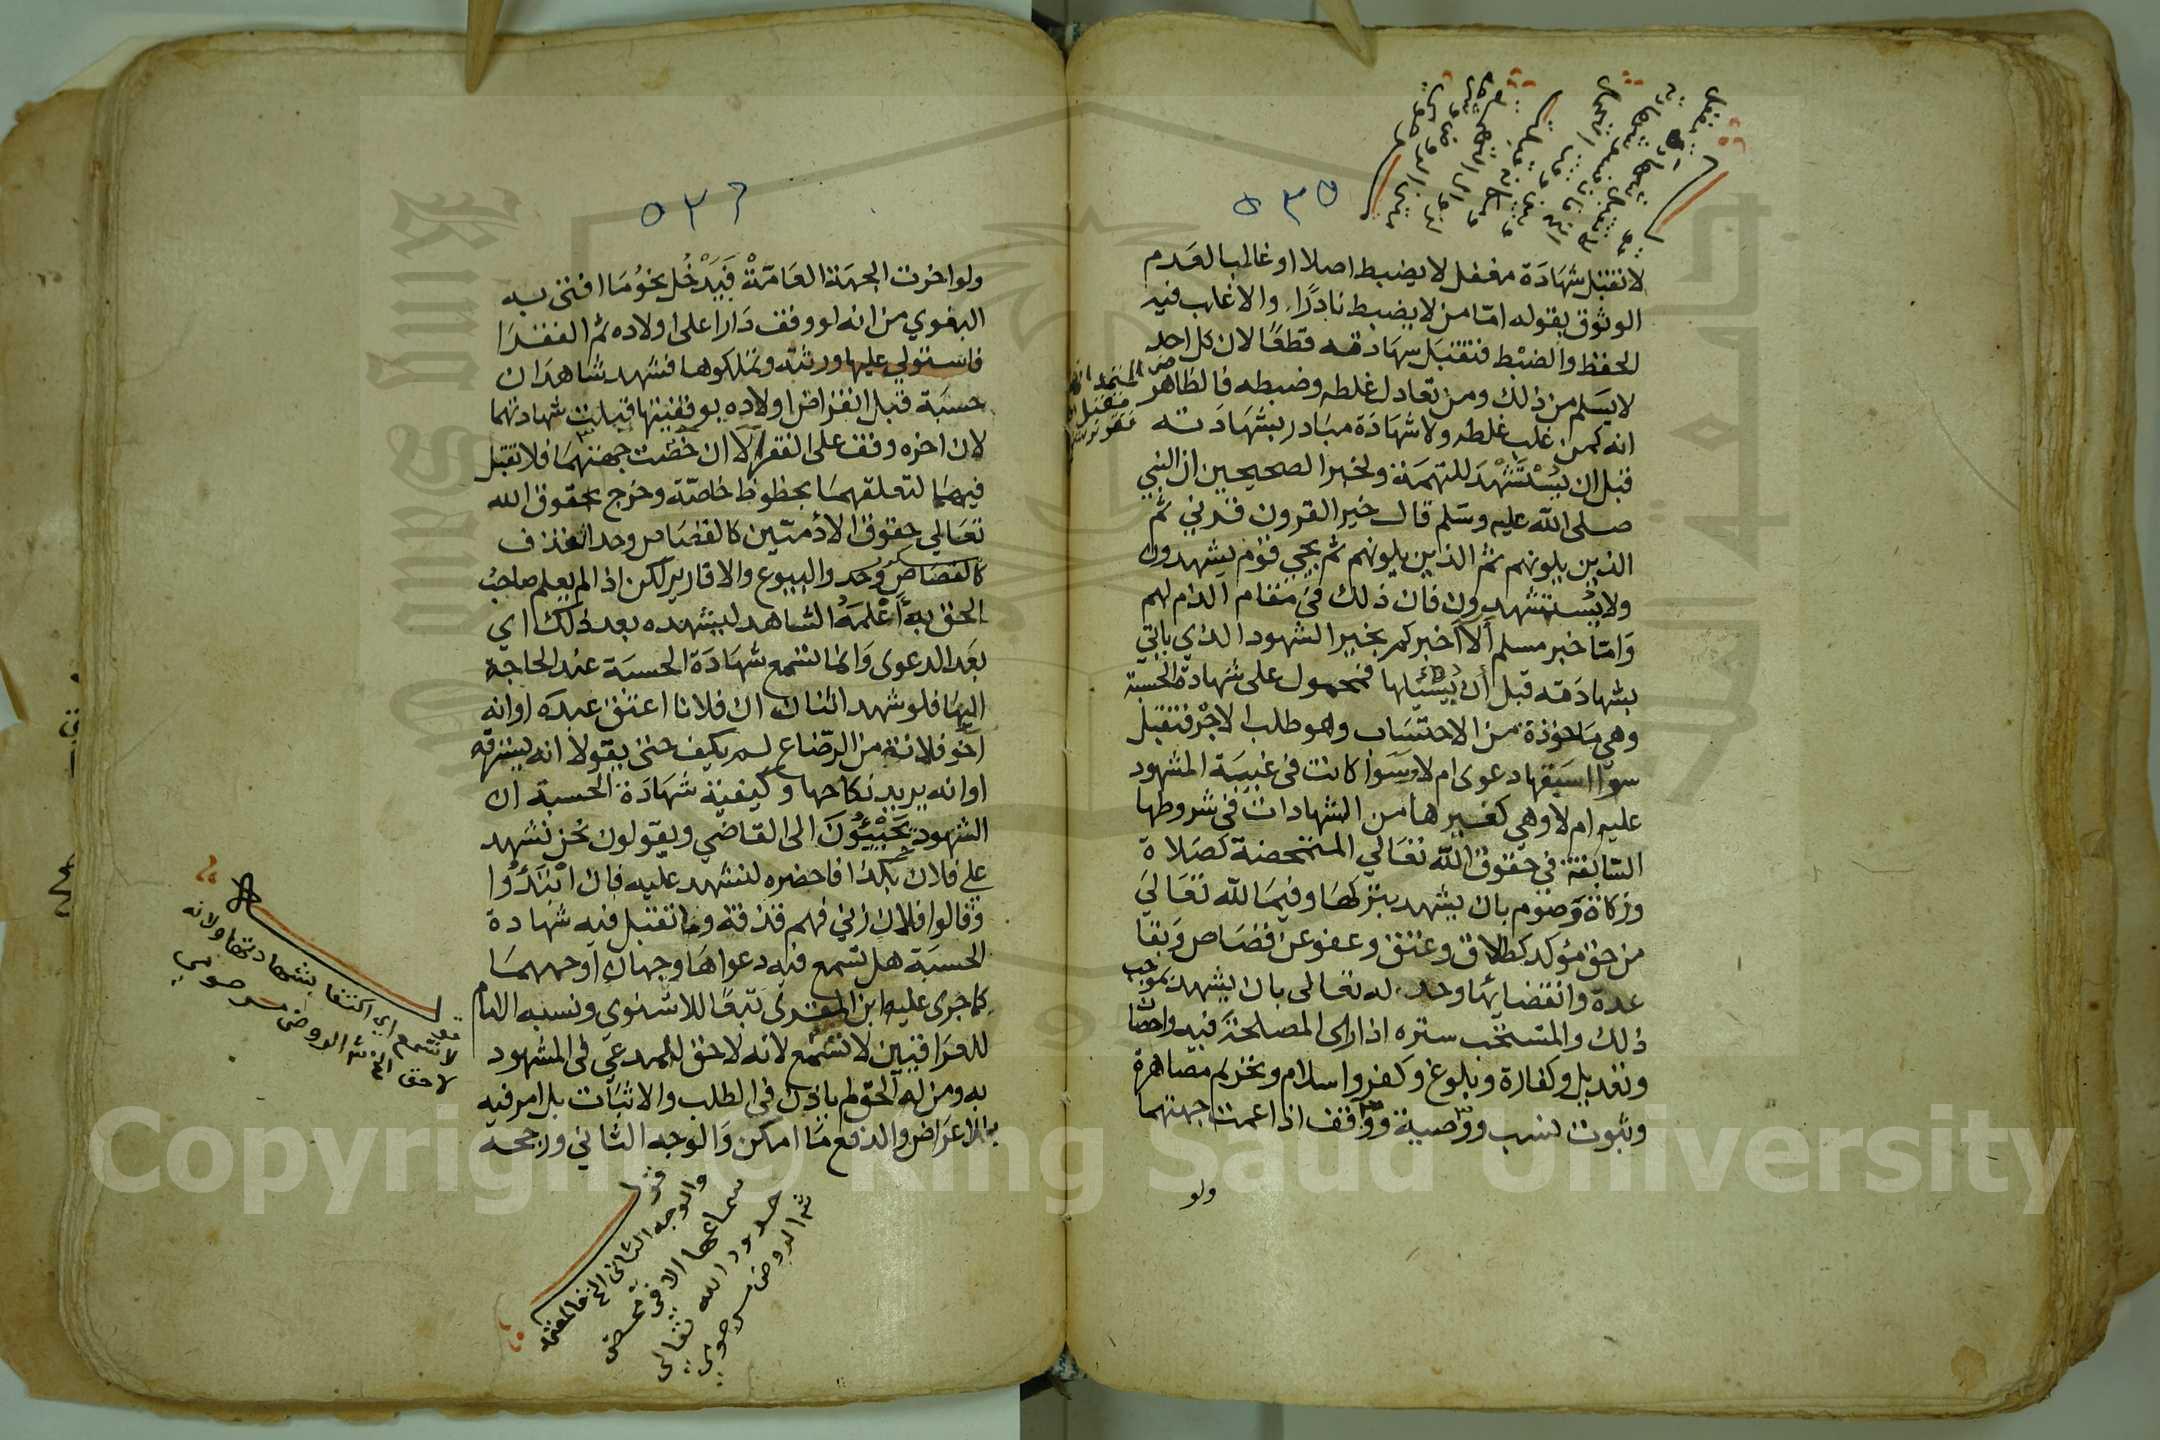 ٥٣٥
لا تقبل شهادة مغفل لا يضبط اصلا او غالبا لعدم
الوثوق بقوله امّا من لا يضبط نادرًا والاغلب فيه
الحفظ والضبط فتقبل شهادته قطعًا لان كل احد
لا يسلم من ذلك ومن تعادل غلطه وضبطه فالظاهر
انه كمن غلب غلطه ولا شهادة مبادر بشهادته
قبل ان يُسْتَشْهَدَ للتهمة ولخبر الصحيحين ان النبي
صلى الله عليه وسلم قال خير القرون قرني ثم
الذين يلونهم ثم الذين يلونهم ثم يجي قوم يشهدون
ولا يُستشهدون فان ذلك في مقام الذم لهم
وَامّا خبر مسلم ألا اخبركم بخير الشهود الذي ياتي
بشهادته قبل أن يُسْئَلها فمحمول على شهادة الحسبة
وهي ماخوذة من الاحتساب وهو طلب الاجْر فتقبل
سوا اسبقها دعوى ام لا وسوا كانت في غيبة المشهود
عليه ام لا وهي كغيرها من الشهادات في شروطها
السابقة في حقوق الله تعالي المتمحضة كصلاة
وزكاة وَصَوم بان يشهد بتركها وفيما لله تعالي
من حق مؤكد كطلاق وعتق وعفو عن قصاص وبقا
عدة وانقضائها وحد له تعالى بان يشهد بموجب
ذلك والمستحب ستره اذا راى المصلحة فيه واحصان
وتعديل وكفارة وبلوغ وكفر واسلام وتحريم مصاهرة
وثبوت نسب ووصية ووقف اذا عمت جهتهما
ولو
٥٣٦
ولو اخرت الجهة العَامّة فَيَدْخُل نحوُمَا افتى به
البغوي من انه لو وقف دَارا على اولاده ثم الفقرا
فاستولي عليها ورثته وتملكوها فشهد شاهدان
حسبة قبل انقراض اولاده بوقفيتها قبلت شهادتهما
لان اخره وقف على الفقرا لا ان خصّت جهتهما فلا تقبل
فيهما لتعلقهما بحظوظ خاصّة وخرج بحقوق الله
تعالي حقوق الادميّين كالقصاص وحد القذف
كالقصاص وحد والبيوع والاقارير لكن اذا لم يعلم صاحبُ
الحق به أعْلَمَهُ الشاهد ليشهده بعد ذلك اي
بعَد الدعوى وَانما تسمع شهادة الحسبة عند الحاجة
اليها فلو شهد اثنان ان فلانا اعتق عبده او انه
اخو فلانة من الرضاع لم يكف حتى يقولا انه يسترقه
او انه يريد نكاحها وكيفية شهادة الحسبة ان
الشهود يَجِيْئُوْنَ الى القاضي ويقولون نحن نشهد
على فلان بكذا فاحضره لنشهد عليه فان ابْتَدَؤُا
وقالوا فلان زاني فهم قذفة وما تقبل فيه شهادة
الحسبة هل تسمع فيه دعواها وجهان اوجههما
كما جرى عليه ابن المقرى تبعًا للاسنوي ونسبه الامام
للعراقيين لا تسمع لانه لا حق للمدعي في المشهود
به ومن له الحق لم ياذن في الطلب والاثبات بل امر فيه
بالاعراض والدفع مَا امكن وَالوجه الثاني ورجحه
قوله
لا تسمع اي اكتفا بشهادتها ولانه
لا حق الخ شر الروض مرصومي
قوله
والوجه الثاني الخ فالمعتمد
سماعها الا في محض
حدود الله تعالى
شر الروض مرصومي